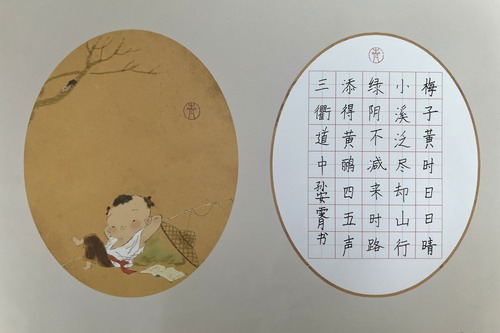 梅子黄时日日晴
小溪泛尽却山行
绿阴不减来时路
添得黄鹂四五声
三衢道中 孙 书